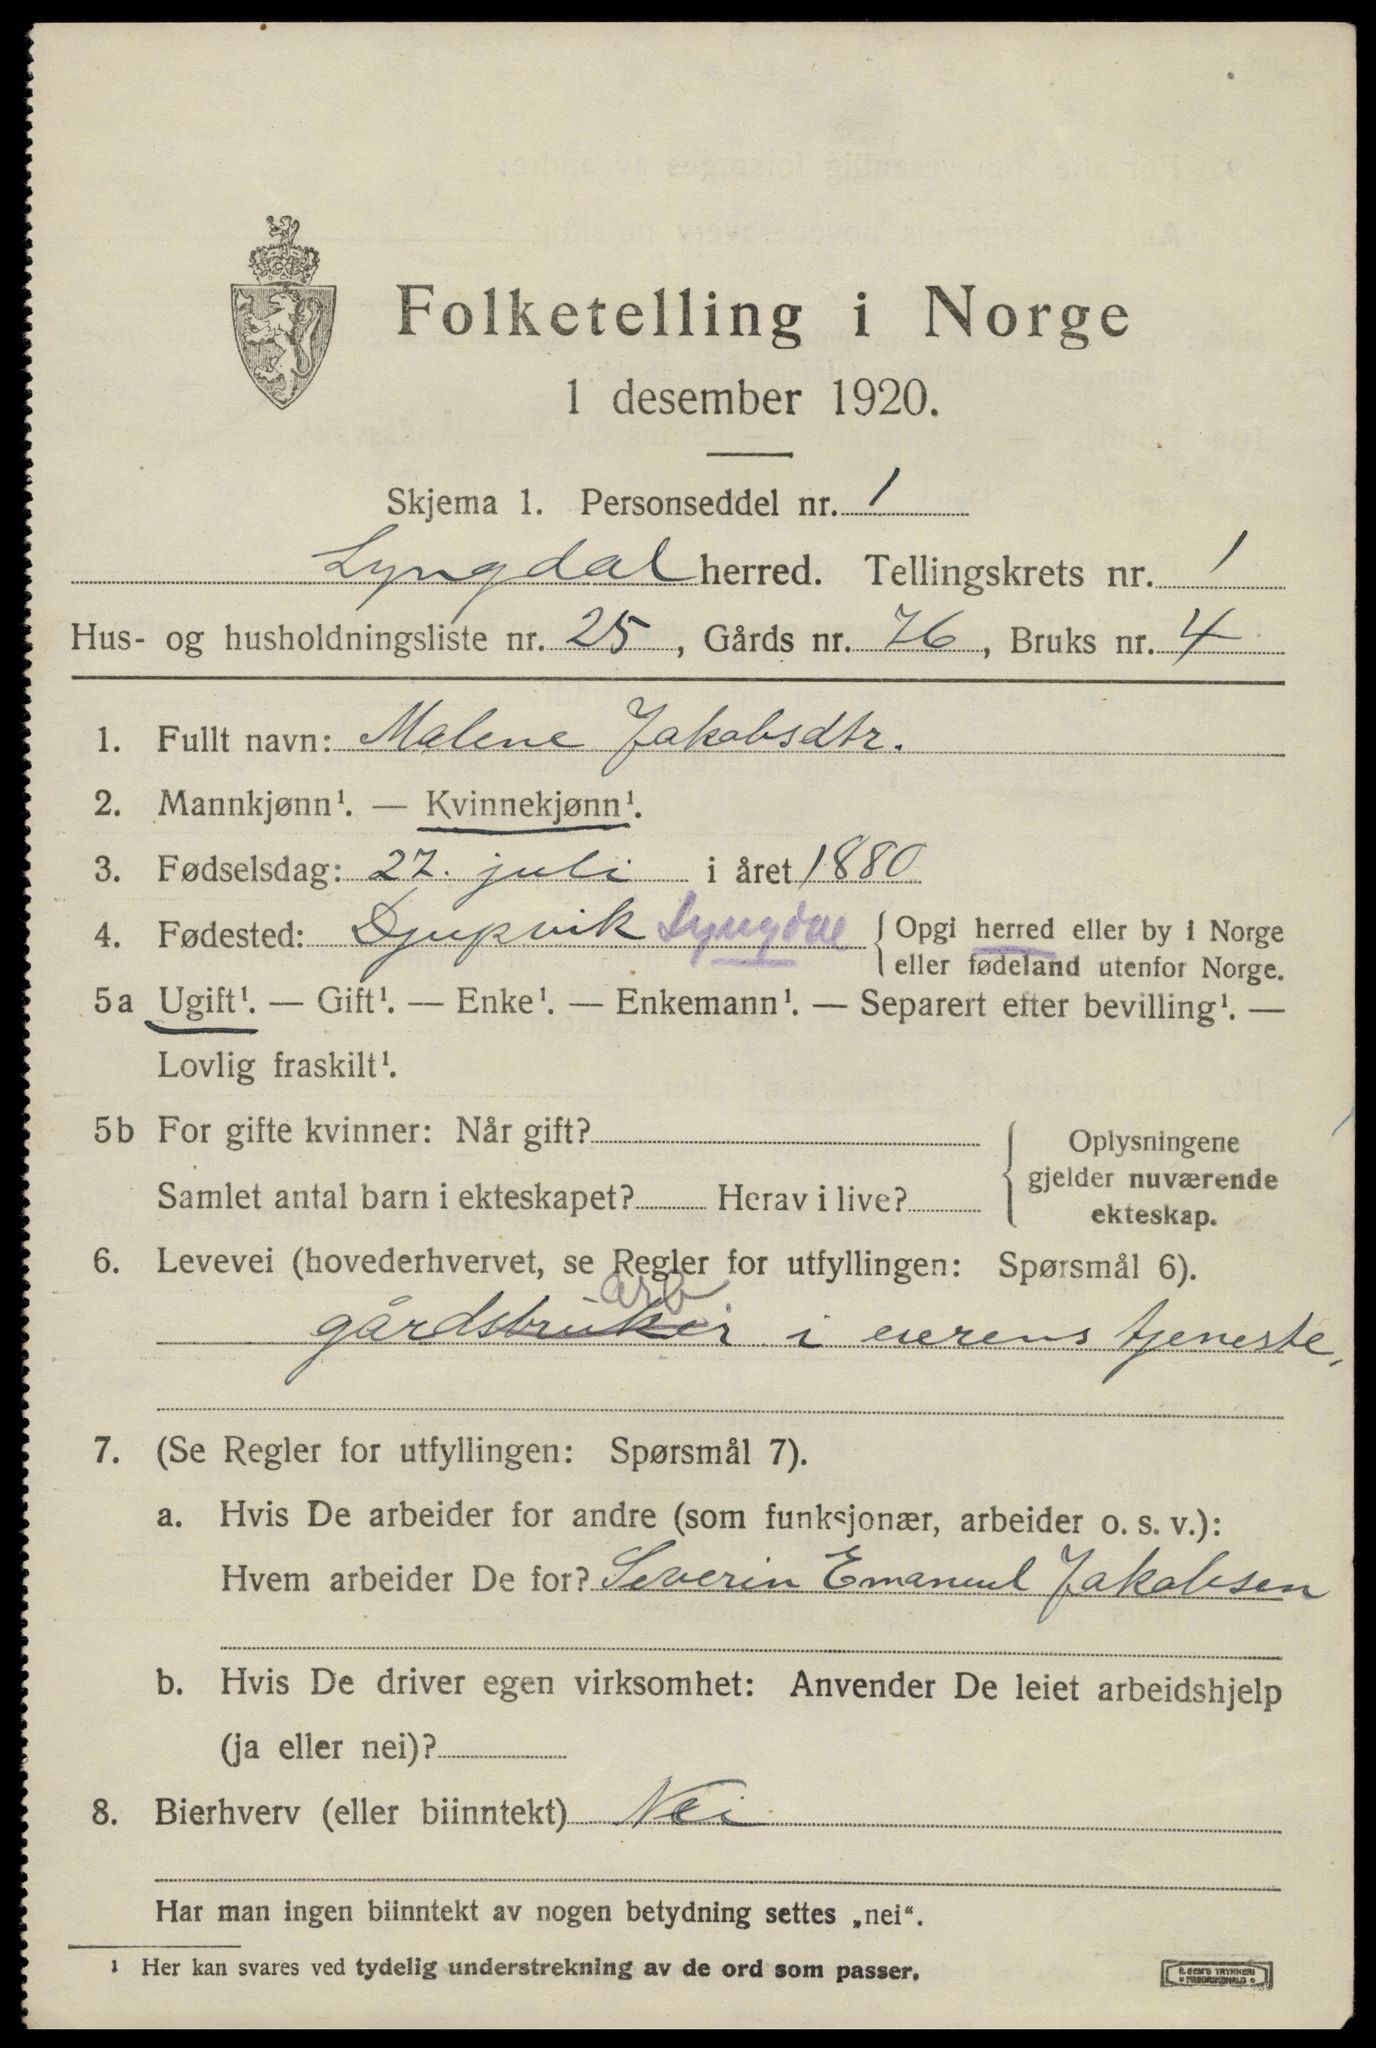 Folketelling i Norge
1 desember 1920.
Skjema 1. Personseddel nr. 1
Lyngdal herred. Tellingskrets nr. 1
Hus- og husholdningsliste nr. 25, Gårds nr. 76, Bruks nr. 4
1. Fullt navn: Malene Jakobsdtr.
2. Mannkjønn¹. — Kvinnekjønn¹.
3. Fødselsdag: 27. juli i året 1880
4. Fødested: Djupvik Lyngdal { Opgi herred eller by i Norge
eller fødeland utenfor Norge.
5a Ugift¹. — Gift¹. — Enke¹. — Enkemann¹. — Separert efter bevilling¹. —
Lovlig fraskilt¹.
5b For gifte kvinner: Når gift?
Samlet antal barn i ekteskapet? Herav i live?
Oplysningene
gjelder nuværende
ekteskap.
6. Levevei (hovederhvervet, se Regler for utfyllingen: Spørsmål 6).
arb
gårdsbruker i eierens tjeneste,
7. (Se Regler for utfyllingen: Spørsmål 7).
a. Hvis De arbeider for andre (som funksjonær, arbeider o. s. v.):
Hvem arbeider De for? Severin Emanuel Jakobsen
b. Hvis De driver egen virksomhet: Anvender De leiet arbeidshjelp
(ja eller nei)?
8. Bierhverv (eller biinntekt) Nei
Har man ingen biinntekt av nogen betydning settes „nei“.
¹ Her kan svares ved tydelig understrekning av de ord som passer.